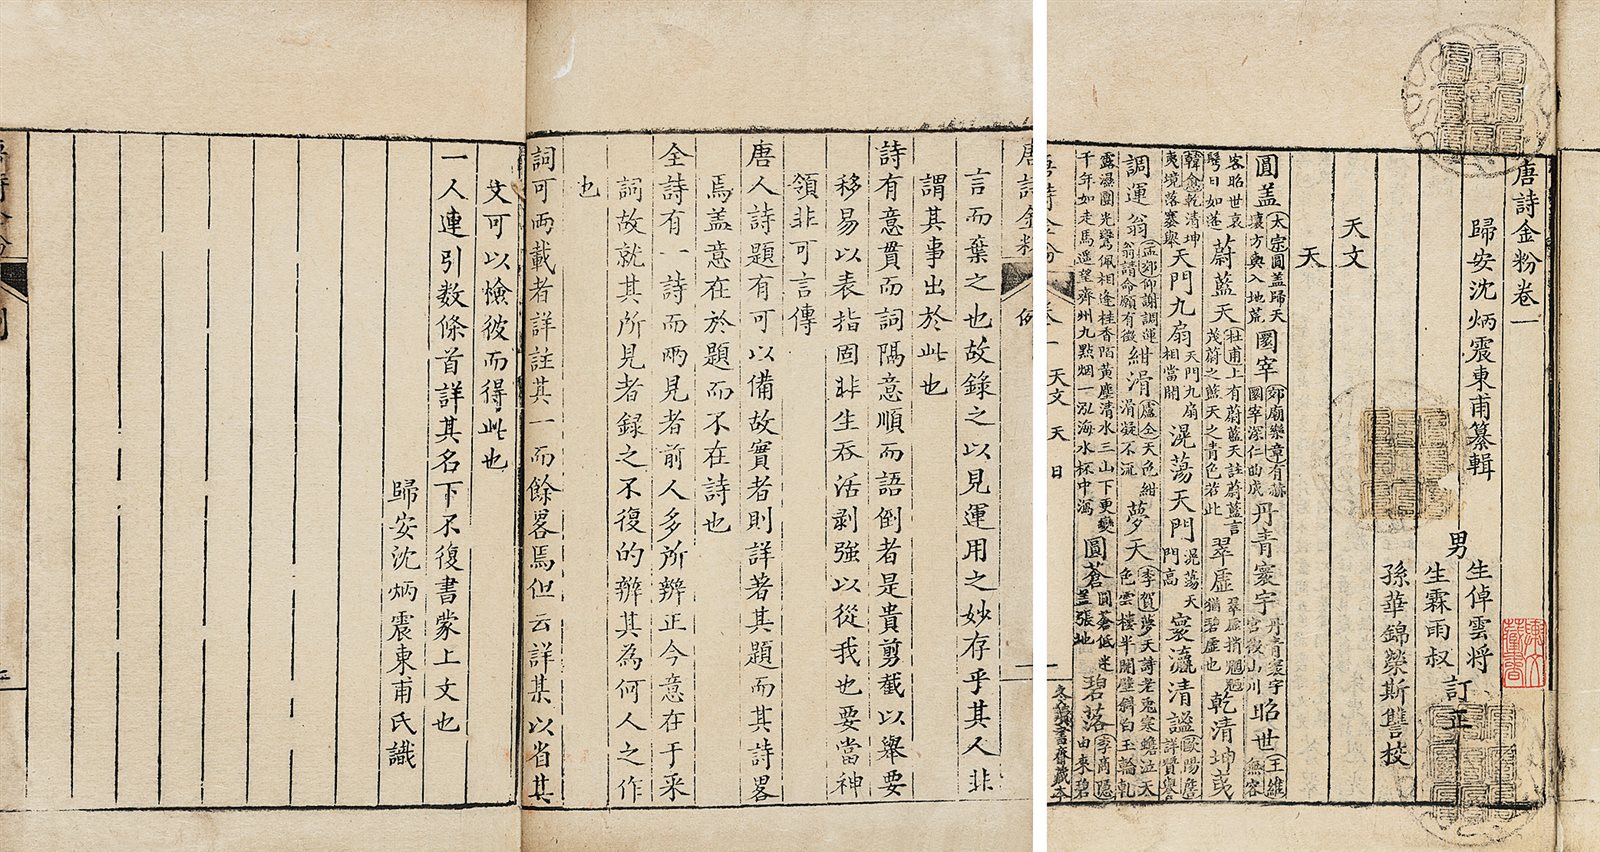 唐詩金粉卷一
歸安沈炳震東甫纂輯
男 生倬雲将 生霖雨叔 訂正
孫華錦榮斯讐校
天文
天
圓盖 太宗圓盖歸天壤方輿入地荒 圜宰 郊廟樂章有赫圜宰深仁曲成 丹青寰宇 丹青寰宇宮徵山川 昭世 王維無容
客昭世哀鬢日如蓬 蔚藍天 杜甫上有蔚藍天註蔚藍言茂蔚之藍天之青色若此 翠虛 翠虛捎魍魎猶碧虛也 乾清坤夷
韓愈乾清坤夷境落褰舉 天門九扇 天門九扇相當開 滉蕩天門 滉蕩天門高 寥瀛清謐 歐陽詹詳覽
調運翁 孟郊仰謝調運翁翁請命願有徵 紺滑 盧仝天色紺滑凝不流 夢天 李賀夢天詩老兎寒蟾泣天色雲樓半開壁斜白玉輪軋
露濕團光鸞佩相逢桂香陌黃塵清水三山下更變千年如走馬遥望齊州九點烟一泓海水杯中瀉 圓蒼 圓蒼低迷盖張地 碧落 李商隱由来碧
唐詩金粉 卷一 天文 天 日 一 冬讀書齋藏本
唐詩金粉 例
言而棄之也故錄之以見運用之妙存乎其人非
謂其事出於此也
詩有意貫而詞隔意順而語倒者是貴剪截以舉要
移易以表指固非生吞活剥強以從我也要當神
領非可言傳
唐人詩題有可以備故實者則詳著其題而其詩畧
焉盖意在於題而不在詩也
全詩有一詩而兩見者前人多所辨正今意在于采
詞故就其所見者録之不復的辨其為何人之作
也
詞可兩載者詳註其一而餘畧焉但云詳某以省其
文可以檢彼而得此也
一人連引数條首詳其名下不復書蒙上文也
歸安沈炳震東甫氏識